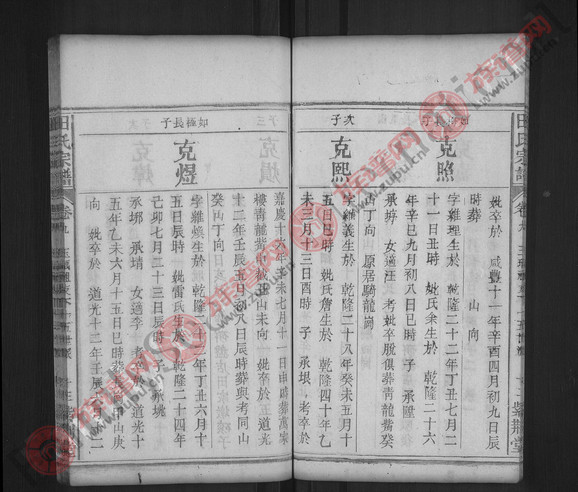 田氏宗譜
卷九
紫荆堂
妣卒於 咸豐十一年辛酉四月初九日辰
時葬 山 向
如極長子
克照
字離理生於 乾隆二十二年丁丑七月二
十一日丑時 妣氏余生於 乾隆二十六
年辛巳九月初八日巳時 子 承
承 女適汪 考妣卒股俱葬青龍嘴癸
山丁向 原居騎龍崗
次子
克熙
字 義生於 乾隆二十八年癸未五月十
五日巳時 妣氏詹生於 乾隆四十年乙
未三月初三日酉時 子 承垠 考卒於
三子
嘉慶十 年 未七月十 日申時葬萬家
樓青龍嘴 山未向 妣卒於 道光
十二年壬辰五月初八日辰時葬與考同山
癸山丁向
如極長子
克煜
字離煥生於 乾隆二十二年丁丑六月十
五日辰時 妣雷氏生於 乾隆二十四年
己卯七月二十三日辰時 子 承
承 承 女適 考卒於 道光十
五年乙未六月十五日巳時葬 山庚
向 妣卒於 道光十二年壬辰 二
田氏宗譜
卷九
紫荆堂
族譜网
www.zupu.cn